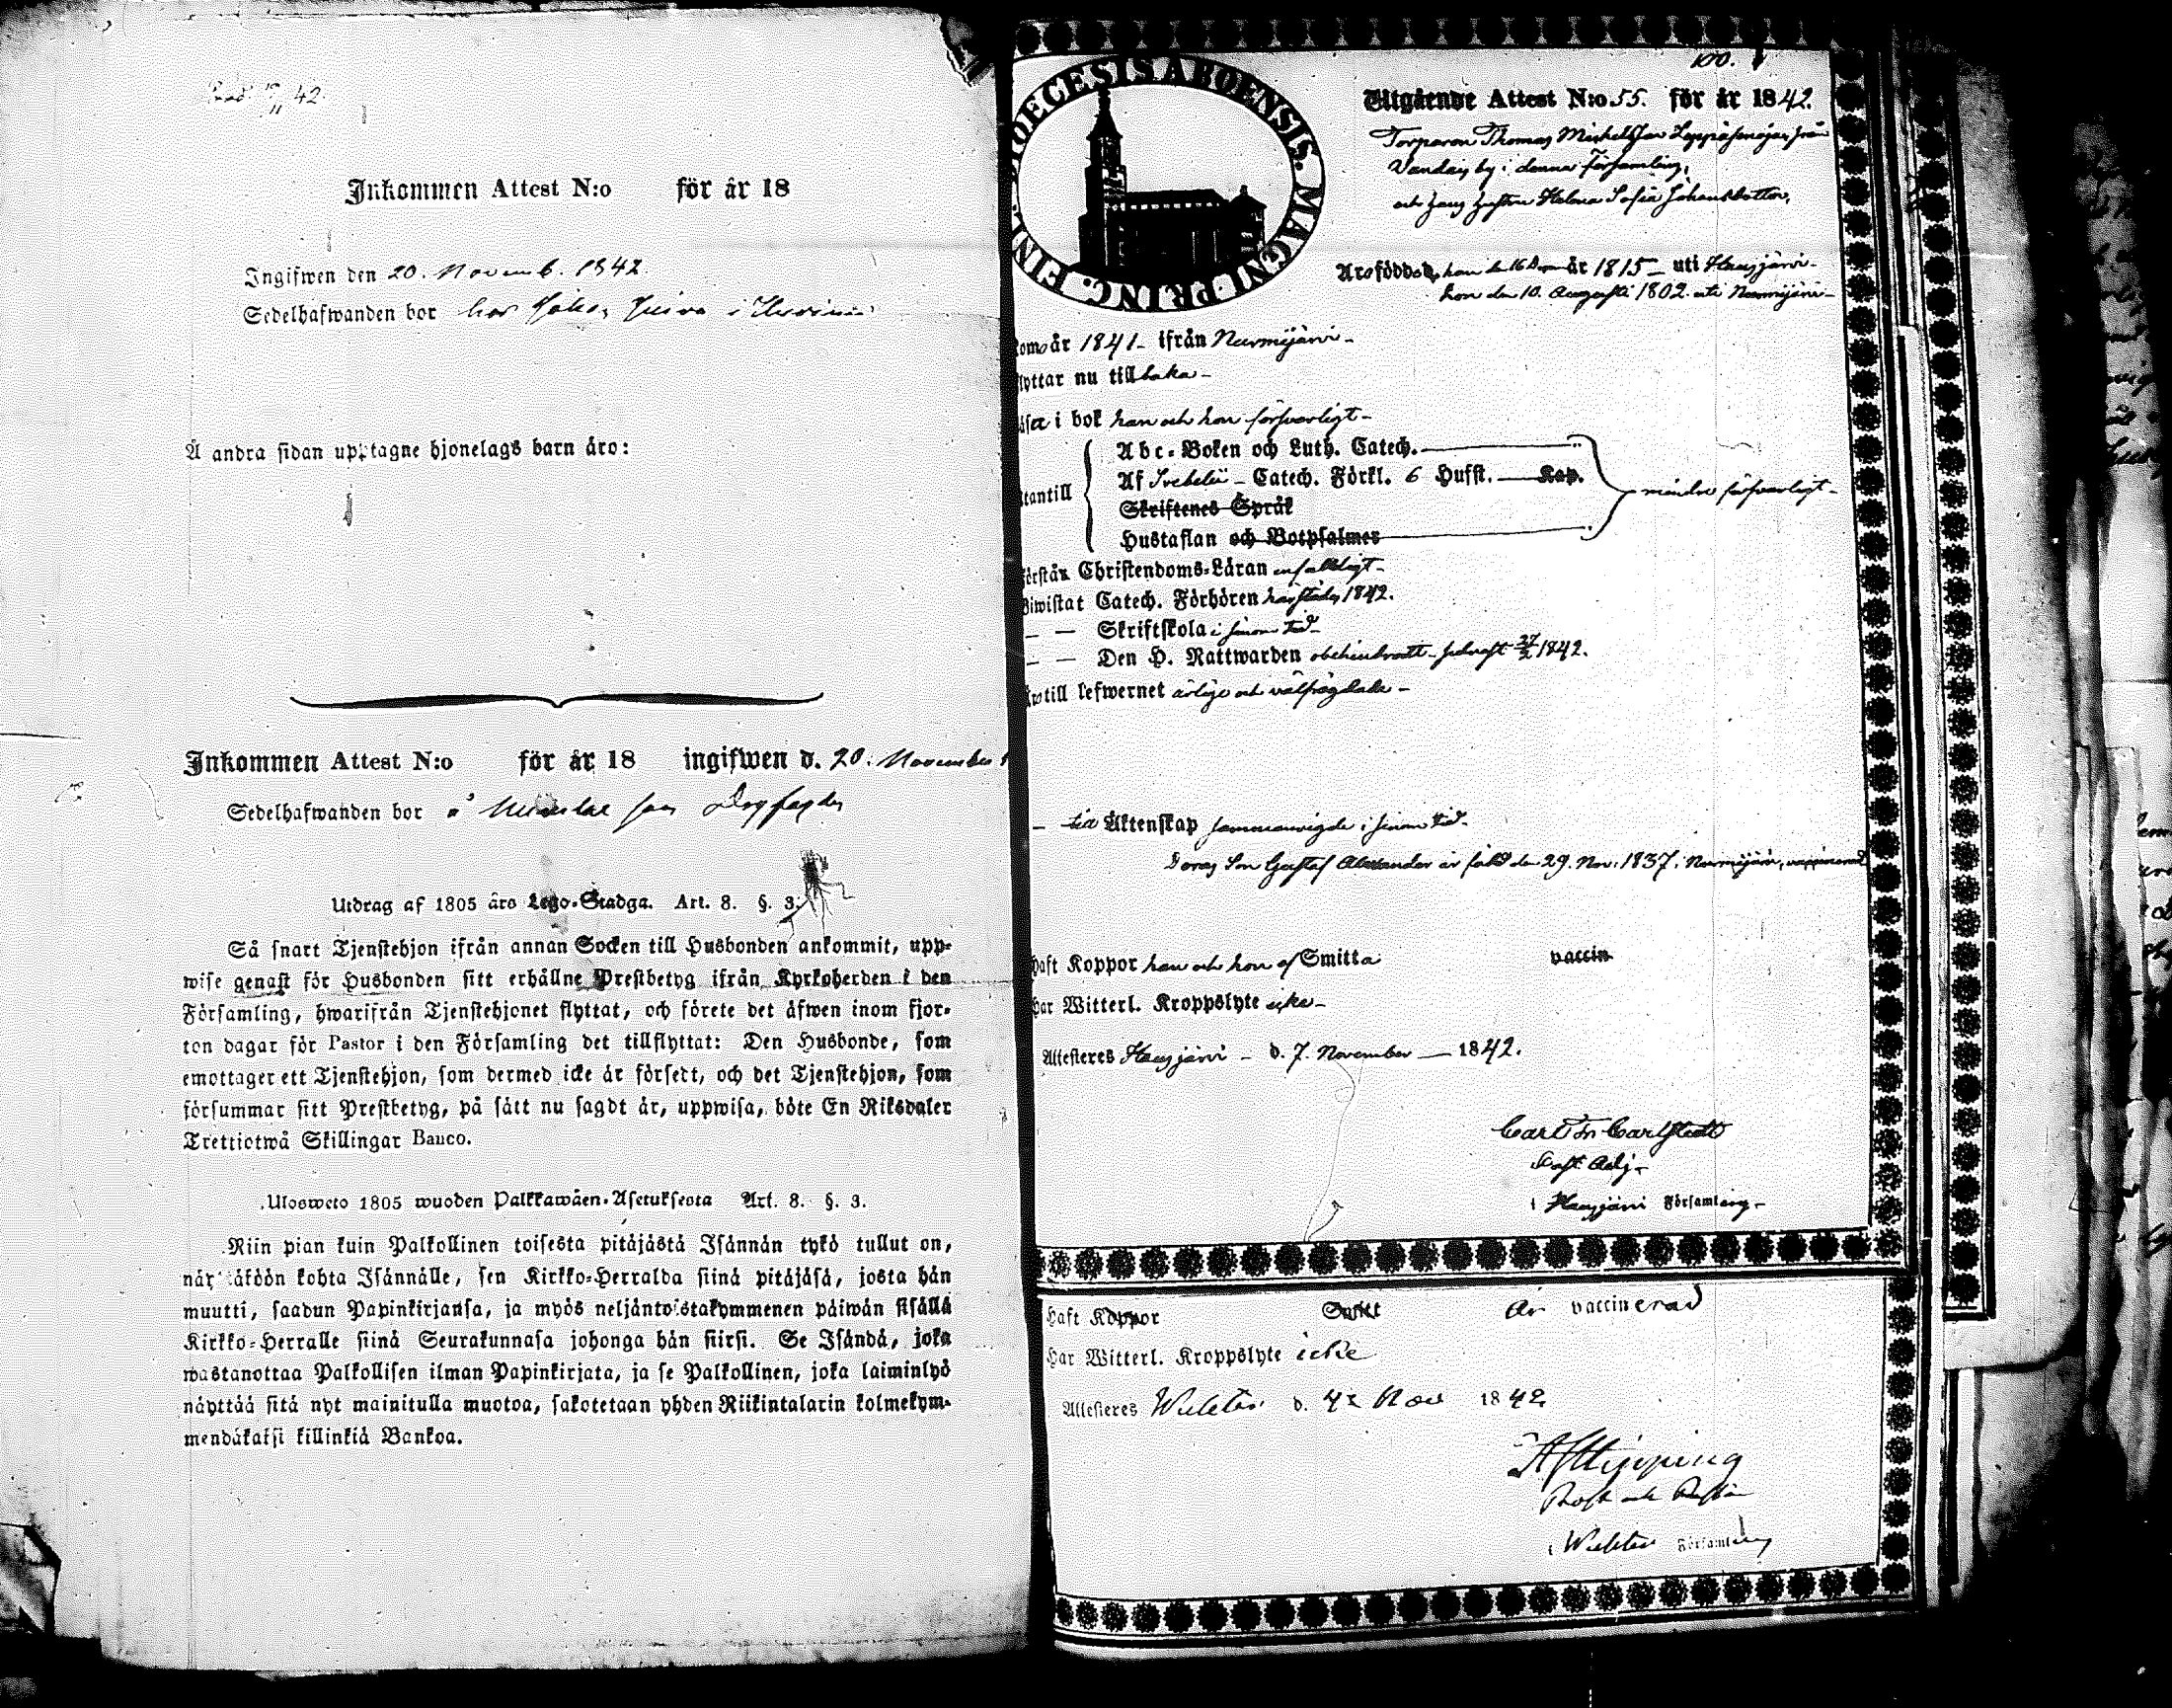 42.
Inkommen Attest N:o för år 18
Ingifwen den 20. Novemb. 1842.
Sedelhafwanden bor hos i
Å andra sidan upptagne hjonelags barn äro:
Inkommen Attest N:o för år 18 ingifwen d. 20. November
Sedelhafwanden bor å
Utdrag af 1805 års Lego-Stadga. Art. 8. §. 3.
Så snart Tjenstehjon ifrån annan Socken till Husbonden ankommit, upp-
wise genast för Husbonden sitt erhållne Prestbetyg ifrån Kyrkoherden i den
Församling, hwarifrån Tjenstehjonet flyttat, och förete det äfwen inom fjor-
ton dagar för Pastor i den Församling det tillflyttat: Den Husbonde, som
emottager ett Tjenstehjon, som dermed icke är försedt, och det Tjenstehjon, som
försummar sitt Prestbetyg, på sätt nu sagdt är, uppwisa, böte En Riksdaler
Trettiotwå Skillingar Banco.
Ulosweto 1805 wuoden Palkkawäen-Asetuksesta Art. 8. §. 3.
Niin pian kuin Palkollinen toisesta pitäjästä Isännän tykö tullut on,
näyttäköön kohta Isännälle, sen Kirkko-Herralda siinä pitäjäsä, josta hän
muutti, saadun Papinkirjansa, ja myös neljäntoistakymmenen päiwän sisällä
Kirkko-Herralle siinä Seurakunnasa johonga hän siirsi. Se Isändä, joka
wastanottaa Palkollisen ilman Papinkirjata, ja se Palkollinen, joka laiminlyö
näyttää sitä nyt mainitulla muotoa, sakotetaan yhden Riikintalarin kolmekym-
mendäkaksi killinkiä Bankoa.
100.
DIOECESIS ABOENSIS. MAGNI PRINC. FINL.
Utgående Attest N:o 55. för år 1842.
Torparen Thomas Michelsson från
Vandais by i denna Församling,
och hans hustru Helena Sofia Johansdotter,
Äro födde, han den 16 år 1815 - uti Hausjärvi -
hon den 10. Augusti 1802 uti Nurmijärvi -
Komo år 1841 - ifrån Nurmijärvi -
flyttar nu tillbaka -
läser i bok han och hon förswarligt -
utantill
Abc-Boken och Luth. Catech.
Af Svebelii - Catech. Förkl. 6 Hufst. Kap.
Skriftenes Språk
Hustaflan och Botpsalmer
mindre förswarligt -
förstår Christendoms-Läran enfaldigt -
Biwistat Catech. Förhören härstädes 1842.
— — Skriftskola i sinom tid -
— — Den H. Nattwarden obehindradt - sednast 27/2 1842.
Äro till lefwernet ärlige och välfrägdade -
— till Äktenskap sammanvigde i sinom tid -
Deras Son Gustaf Alexander är född den 29. Nov. 1837. i Nurmijärvi, vaccinerad
Haft Koppor han och hon af Smitta vaccin
Har Witterl. Kroppslyte icke -
Attesteres Hausjärvi - d. 7. November — 1842.
Carl Fr Carlstedt
Past. Adj -
i Hausjärvi Församling -
Haft Koppor Smitt är vaccinerad
Har Witterl. Kroppslyte icke
Attesteres d. 4 Nov 1842
Prost och
i Församling